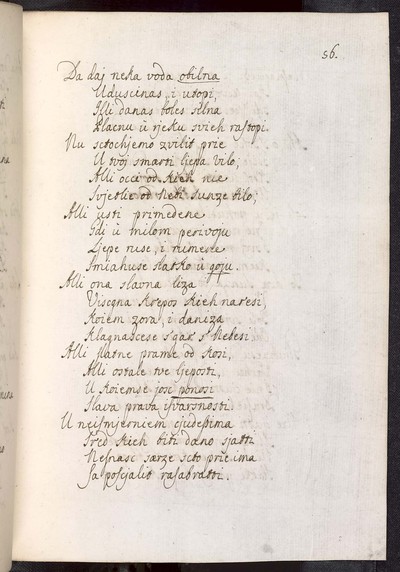 56.
Da daj neka voda obilna
Uduscinas, i utopi,
Illi danas boles silna
Placnu ù rjeku svieh rastopi.
Nu sctochjemo zvilit prie
U tvoj smarti ljepa vilo;
Alli occi od kieh nie
Svjetlie od Neba sunze bilo;
Alli usti primedene
Gdi ù milom perivoju
Ljepe ruse, i rumene
Smiahuse slatko ù goju.
Alli ona slavna liza
Viscgna krepos kieh naresi,
Koiem zora, i daniza
Klagnascese s'gar s'Nebesi
Alli slatne prame od kosi,
Alli ostale tve ljeposti,
U koiemse josc ponosi
Slava prava isvarsnosti.
U neismjerniem cjudessima
Pred kieh biti dano sjatti
Nesnasc sarze scto prie ima
Sa poscjalit rasabratti.